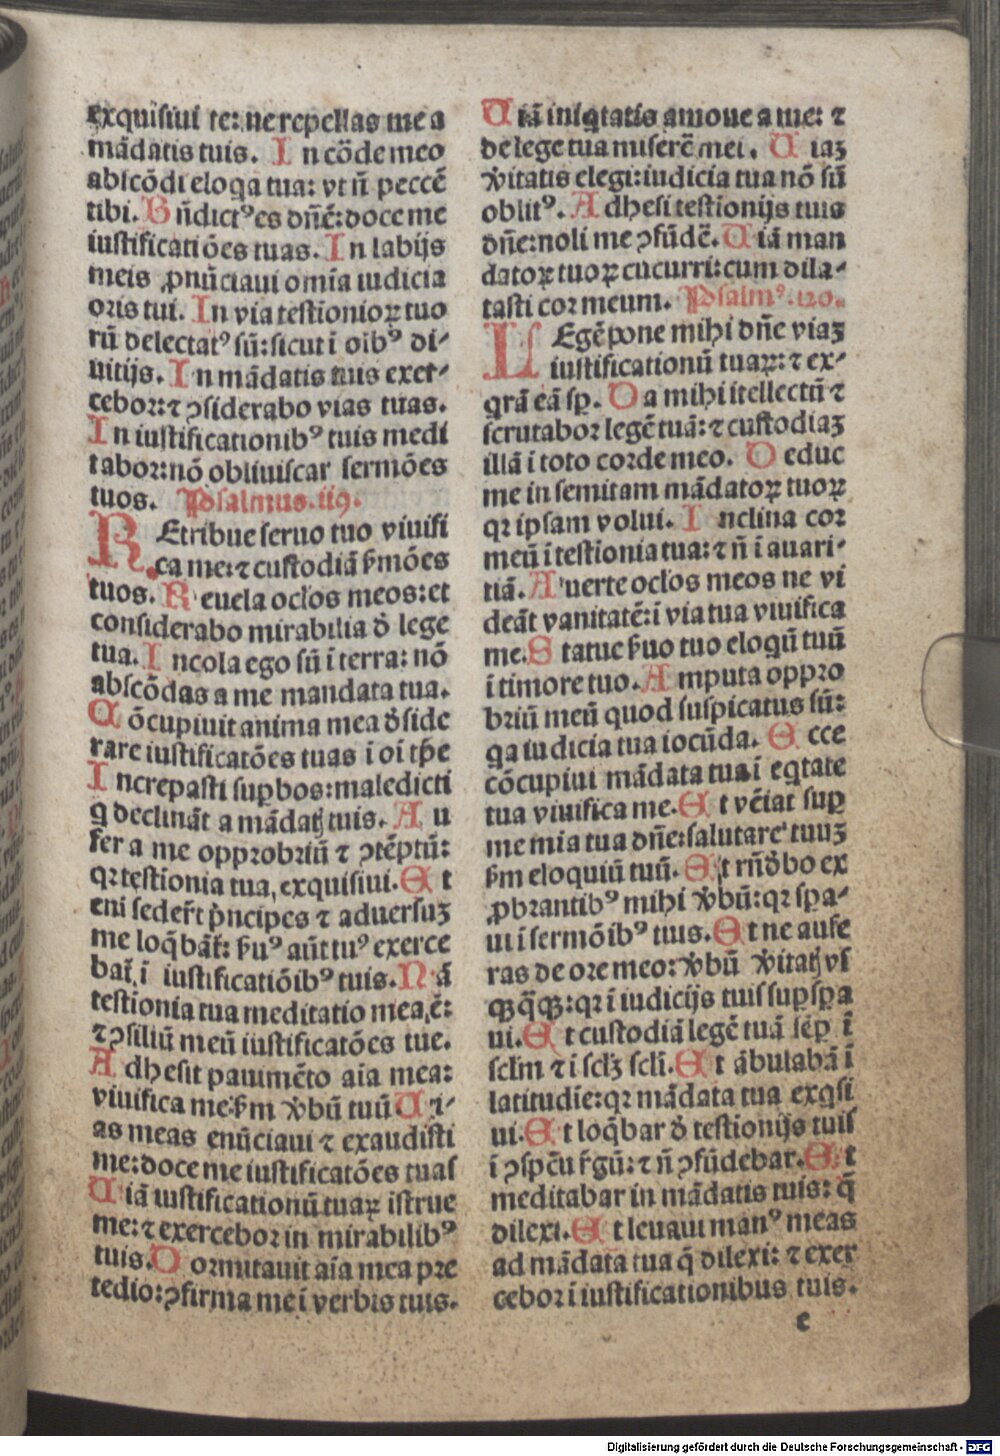 exquisiui te: ne repellas me a
mādatis tuis. In cōde meo
abscōdi eloqa tua: vt n̄ peccē
tibi. Bn̄dictꝰ es dn̄ē: doce me
iustificatiōes tuas. In labijs
meis ꝓnūciaui omīa iudicia
oris tui. In via testionioꝝ tuo
rū delectatꝰ sū: sicut ī oībꝰ di-
uitijs. In mādatis tuis exer-
cebor: ⁊ ꝯsiderabo vias tuas.
In iustificationibꝰ tuis medi
tabor: nō obliuiscar sermōes
tuos. Psalmus .119.
REtribue seruo tuo viuifi
ca me: ⁊ custodiā ẜmōes
tuos. Reuela oc̄los meos: et
considerabo mirabilia ð lege
tua. Incola ego sū ī terra: nō
abscōdas a me mandata tua.
Cōcupiuit anima mea ðside
rare iustificatōes tuas ī oī tp̄e
Increpasti suꝑbos: maledicti
q declināt a mādatꝭ tuis. Au
fer a me opprobriū ⁊ ꝯtēptū:
qꝛ testionia tua exquisiui. Et
eni seder̄t pͥncipes ⁊ aduersuʒ
me loq̄bāt̄: ẜuꝰ aūt tuꝰ exerce
bat̄ ī iustificatiōibꝰ tuis. Nā
testionia tua meditatio mea ē:
⁊ ꝯsiliū meū iustificatōes tue.
Adhesit pauimēto aīa mea:
viuifica me ẜm v̄bū tuū Vi-
as meas enūciaui ⁊ exaudisti
me: doce me iustificatōes tuas
Viā iustificationū tuaꝝ īstrue
me: ⁊ exercebor in mirabilibꝰ
tuis. Dormitauit aīa mea pre
tedio: ꝯfirma me ī verbis tuis.
Viā iniqtatis amoue a me: ⁊
de lege tua miserē mei. Viaʒ
v̄itatis elegi: iudicia tua nō sū
oblitꝰ. Adhesi testionijs tuis
dn̄e: noli me ꝯfūdē. Viā man
datoꝝ tuoꝝ cucurri: cum dila-
tasti cor meum. Psalmꝰ .120.
LEgē pone mihi dn̄e viaʒ
iustificationū tuaꝝ: ⁊ ex-
qrā eā sꝑ. Da mihi ītellectū ⁊
scrutabor legē tuā: ⁊ custodiaʒ
illā ī toto corde meo. Deduc
me in semitam mādatoꝝ tuoꝝ
qꝛ ipsam volui. Inclina cor
meū ī testionia tua: ⁊ n̄ ī auari-
tiā. Auerte oc̄los meos ne vi
deāt vanitatē: ī via tua viuifica
me. Statue ẜuo tuo eloqū tuū
ī timore tuo. Amputa oppro
briū meū quod suspicatus sū:
qa iudicia tua iocūda. Ecce
cōcupiui mādata tua: ī eqtate
tua viuifica me. Et vēiat suꝑ
me mīa tua dn̄e: salutare tuuʒ
ẜm eloquiū tuū. Et rn̄ðbo ex
ꝓbrantibꝰ mihi v̄bū: qꝛ spa-
ui ī sermōibꝰ tuis. Et ne aufe
ras de ore meo: v̄bū v̄itatꝭ vs
qꝫ q̄qꝫ: qꝛ ī iudicijs tuis suꝑspa
ui. Et custodiā legē tuā sēꝑ ī
sclm̄ ⁊ ī sclʒ scl̄i. Et ābulabā ī
latitudīe: qꝛ mādata tua exqsi
ui. Et loq̄bar ð testionijs tuis
ī ꝯspcū r̄gū: ⁊ n̄ ꝯfūdebar. Et
meditabar in mādatis tuis: q̄
dilexi. Et leuaui manꝰ meas
ad mādata tua q̄ dilexi: ⁊ exer
cebor ī iustificationibus tuis.
e
Digitalisierung gefördert durch die Deutsche Forschungsgemeinschaft - DFG